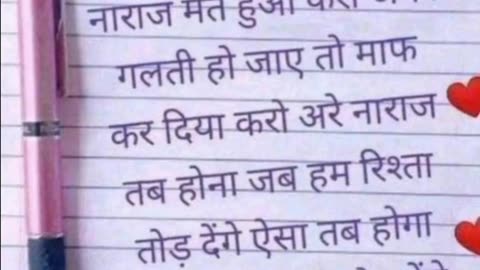 नाराज मत हुआ करो
गलती हो जाए तो माफ
कर दिया करो अरे नाराज
तब होना जब हम रिश्ता
तोड़ देंगे ऐसा तब होगा